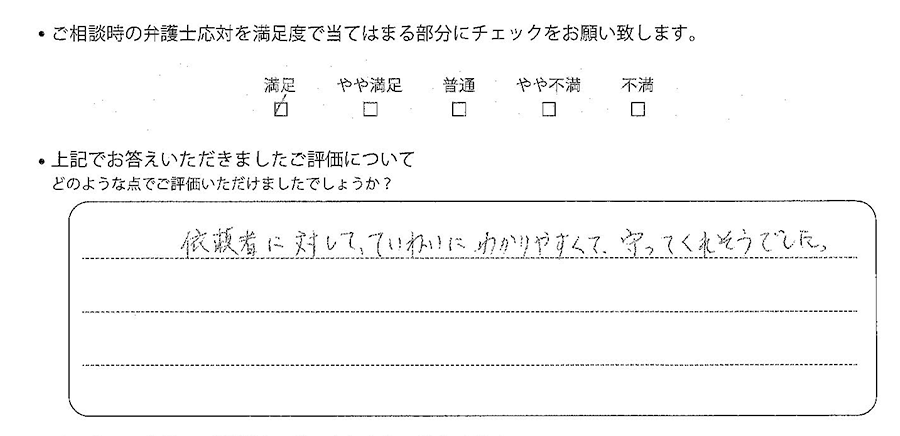 ・ご相談時の弁護士応対を満足度で当てはまる部分にチェックをお願い致します。
満足 やや満足 普通 やや不満 不満
☑ □ □ □ □
・上記でお答えいただきましたご評価について
どのような点でご評価いただけましたでしょうか？
依頼者に対して、ていねいに、わかりやすくて、守ってくれそうでした。